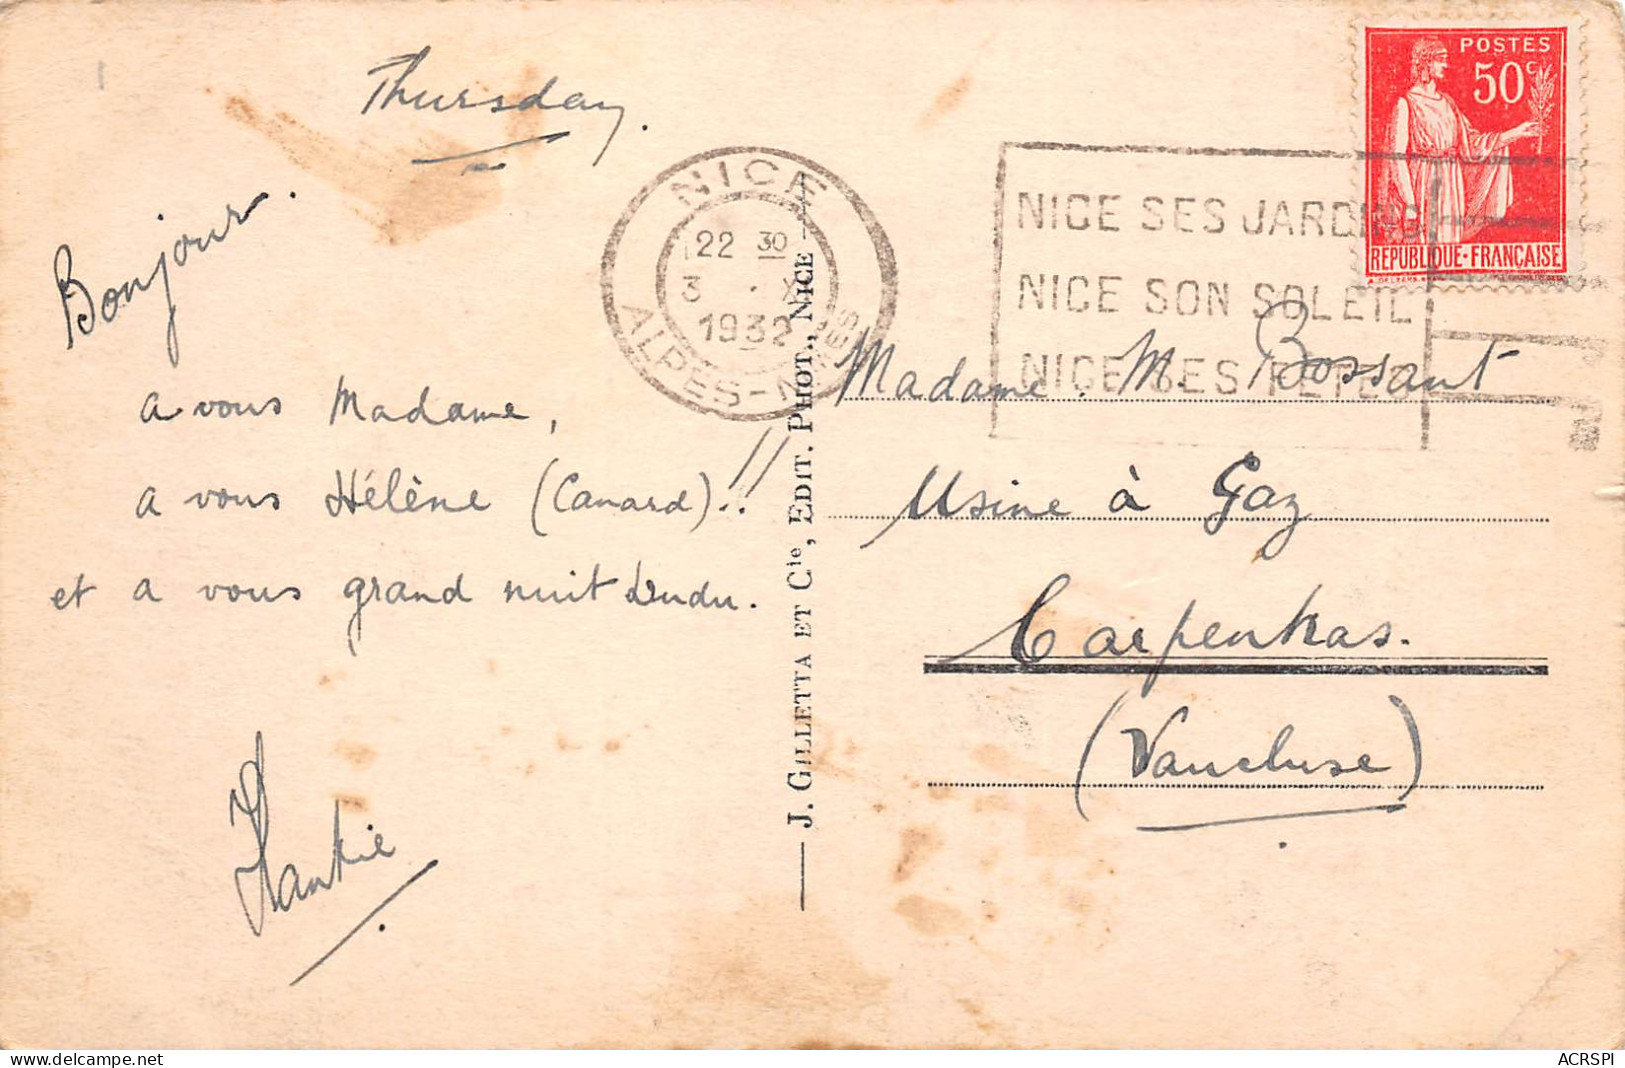 Thursday.
Bonjour.
a vous Madame,
a vous Hélène (Canard)!!
et a vous grand nuit dudu.
NICE
22 30
3 . X
1932
ALPES-MMES
NICE SES JARDINS
NICE SON SOLEIL
NICE SES FETES
POSTES
50c
REPUBLIQUE-FRANÇAISE
Madame. M. Bossant
Usine à Gaz
Carpentras.
(Vaucluse)
J. GILLETTA ET Cie, EDIT. PHOT., NICE
delcampe.net
ACRSPI